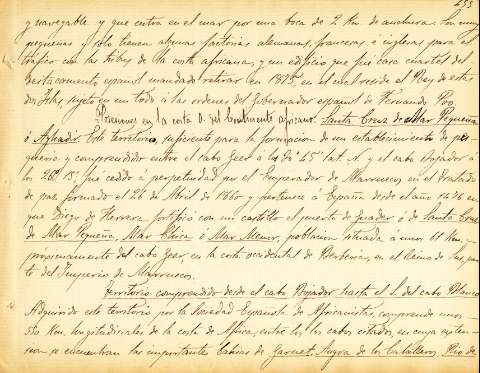 433
y navegable y que entra en el mar por una boca de 2 Km de anchura. Son muy
pequeñas y solo tienen algunas factorias alemanas, francesas é inglesas para el
tráfico con las tribus de la costa africana, y un edificio que fué casa cuartel del
destacamento español mandado retirar en 1875, en el cual reside el Rey de estas
dos Islas, sujeto en un todo á las ordenes del Gobernador español de Fernando Póo
Posesiones en la costa O. del Continente africano. Santa Cruz de Mar Pequeña
ó Aghader. Este territorio, suficiente para la formacion de un establecimiento de pes-
queria y comprendido entre el cabo Geer á los 45' lat. N. y el cabo Bojador á
los 26º fué cedido á perpetuidad por el Emperador de Marruecos en el tratado
de paz firmado el 26 de Abril de 1860 y pertenece á España desde el año 1476 en
que Diego de Herrera fortificó con un castillo el puerto de Guader ó de Santa Cruz
de Mar Pequeña, Mar Chica ó Mar Menor, poblacion situada á unos 61 Km. a-
próximamente del cabo Geer, en la costa occidental de Berberia, en el Reino de Sus, par-
te del Imperio de Marruecos.
Territorio comprendido desde el cabo Bojador hasta el S. del cabo Blanco
Adquirido este territorio por la Sociedad Española de Africanistas, comprende unos
Km. longitudinales de la costa de Africa, entre los los cabos citados, en cuya exten-
sion se encuentran las importantes bahias de Garnet, Angra de los Caballeros, Rio de